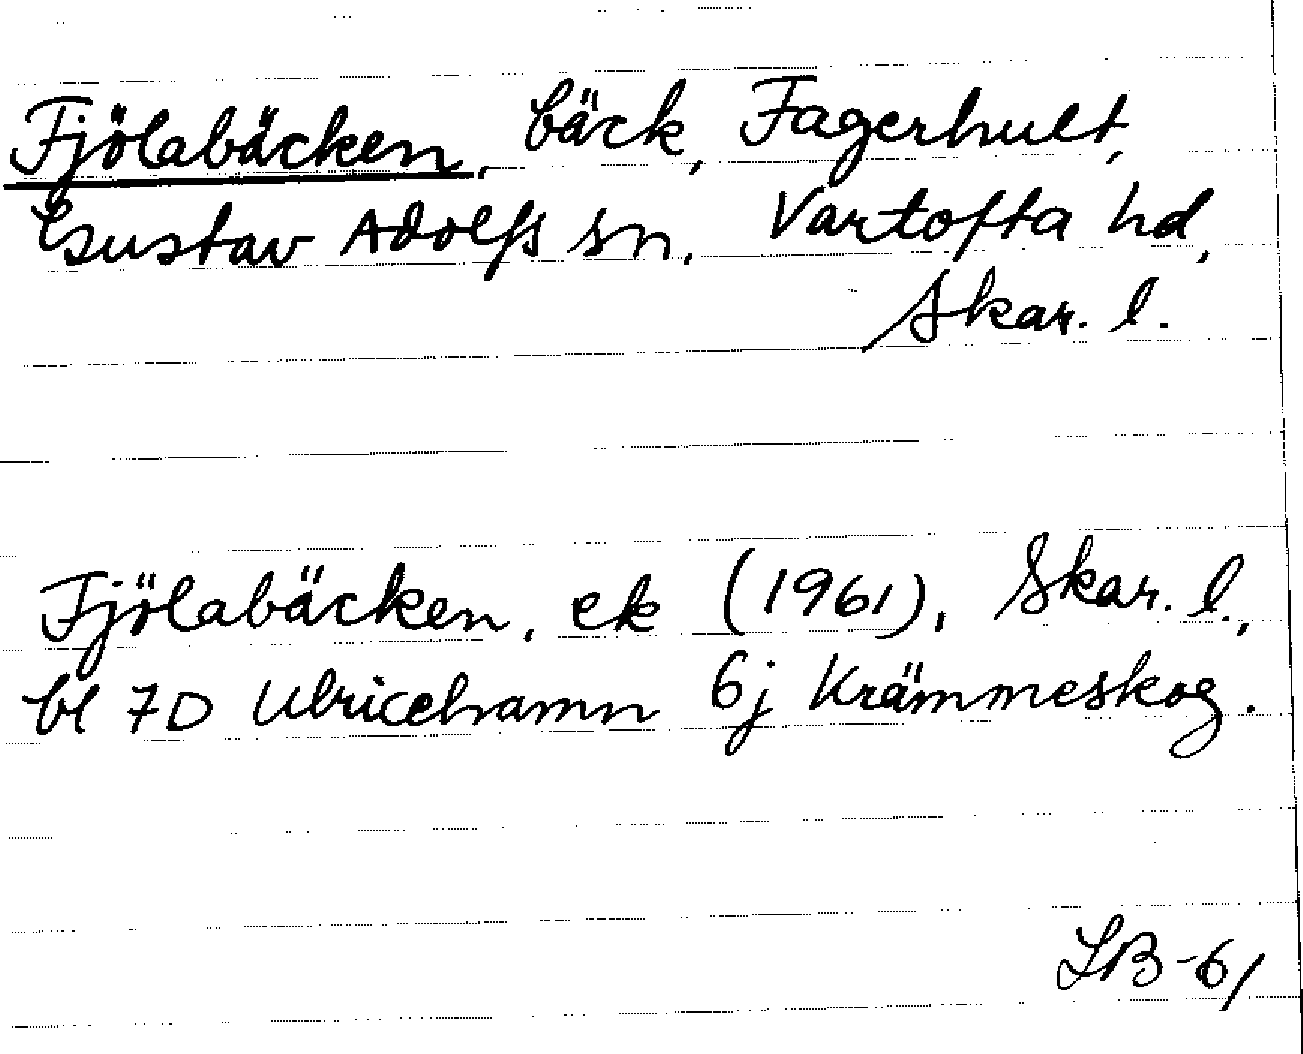 Fjölabäcken, bäck, Fagerhult,
Gustav Adolfs sn, Vartofta hd,
Skar. l.
Fjölabäcken, ek (1961), Skar. l.,
bl 7D Ulricehamn 6j Krämmeskog.
LB-61